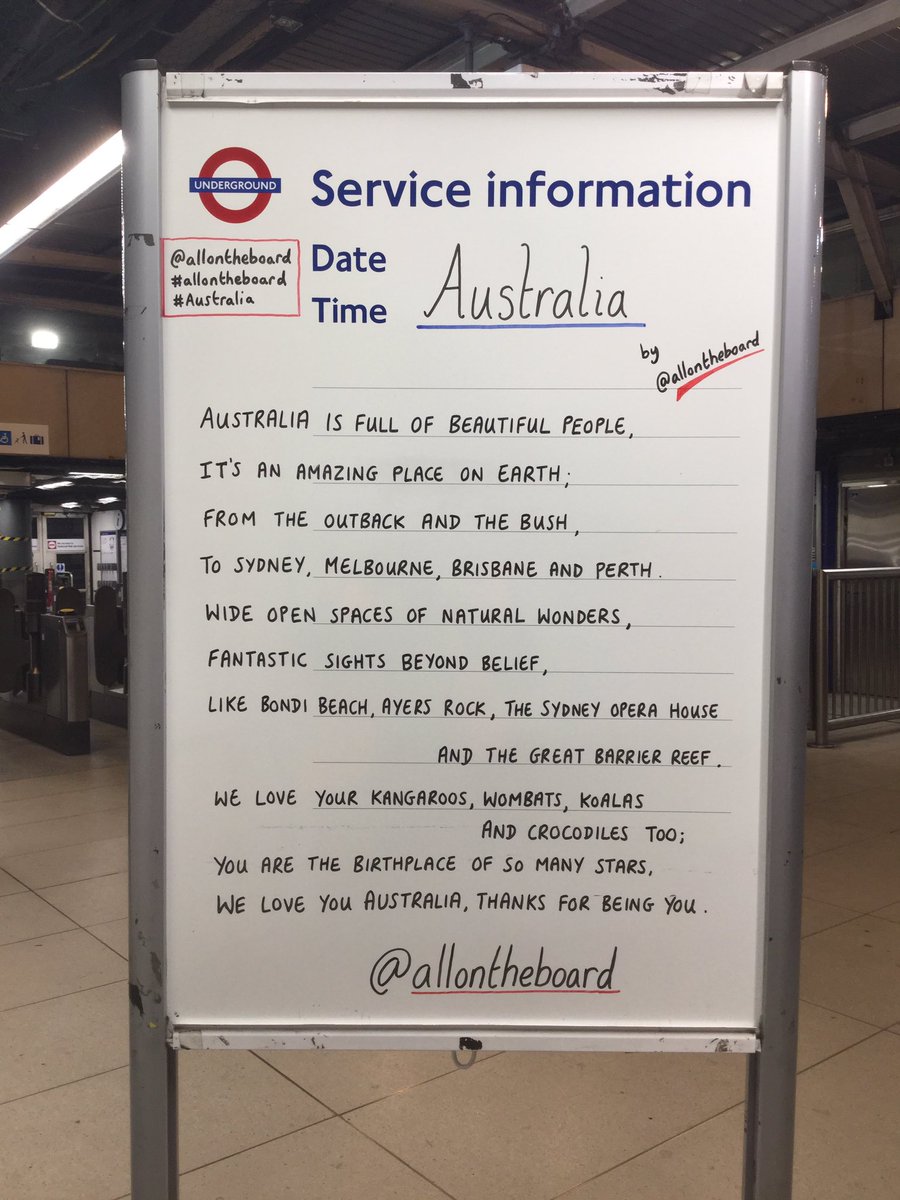 UNDERGROUND
Service information
@allontheboard
#allontheboard
#Australia
Date
Time
Australia
by
@allontheboard
AUSTRALIA IS FULL OF BEAUTIFUL PEOPLE,
IT'S AN AMAZING PLACE ON EARTH;
FROM THE OUTBACK AND THE BUSH,
TO SYDNEY, MELBOURNE, BRISBANE AND PERTH.
WIDE OPEN SPACES OF NATURAL WONDERS,
FANTASTIC SIGHTS BEYOND BELIEF,
LIKE BONDI BEACH, AYERS ROCK, THE SYDNEY OPERA HOUSE
AND THE GREAT BARRIER REEF.
WE LOVE YOUR KANGAROOS, WOMBATS, KOALAS
AND CROCODILES TOO;
YOU ARE THE BIRTHPLACE OF SO MANY STARS,
WE LOVE YOU AUSTRALIA, THANKS FOR BEING YOU.
@allontheboard